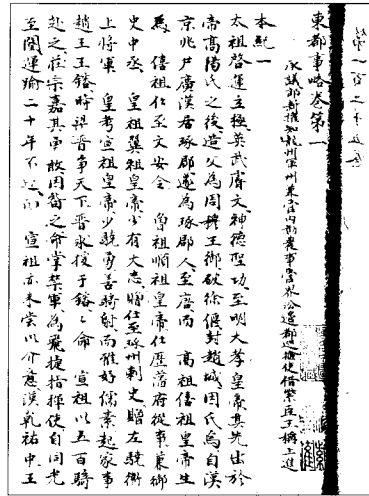 東都事略卷第一
承議郎新權知龍州軍州兼管內勸農事管界沿邊都巡檢使借紫臣王稱上進
本紀一
太祖啓運立極英武睿文神德聖功至明大孝皇帝其先出於
帝高陽氏之後造父為周穆王御破徐偃封趙城因氏焉自漢
京兆尹廣漢居涿郡遂為涿郡人至唐而 高祖僖祖皇帝生
焉 僖祖仕至文安令 曾祖順祖皇帝仕歷藩府從事兼御
史中丞 皇祖翼祖皇帝少有大志贈仕至涿州刺史贈左驍衛
上將軍 皇考宣祖皇帝少驍勇善騎射而雅好儒素起家事
趙王王鎔時梁晉爭天下晉求援于鎔鎔命 宣祖以五百騎
赴之莊宗嘉其勇敢因留之命掌禁軍為飛捷指揮使自同光
至開運踰二十年不遷而 宣祖亦未嘗以介意漢乾祐中王